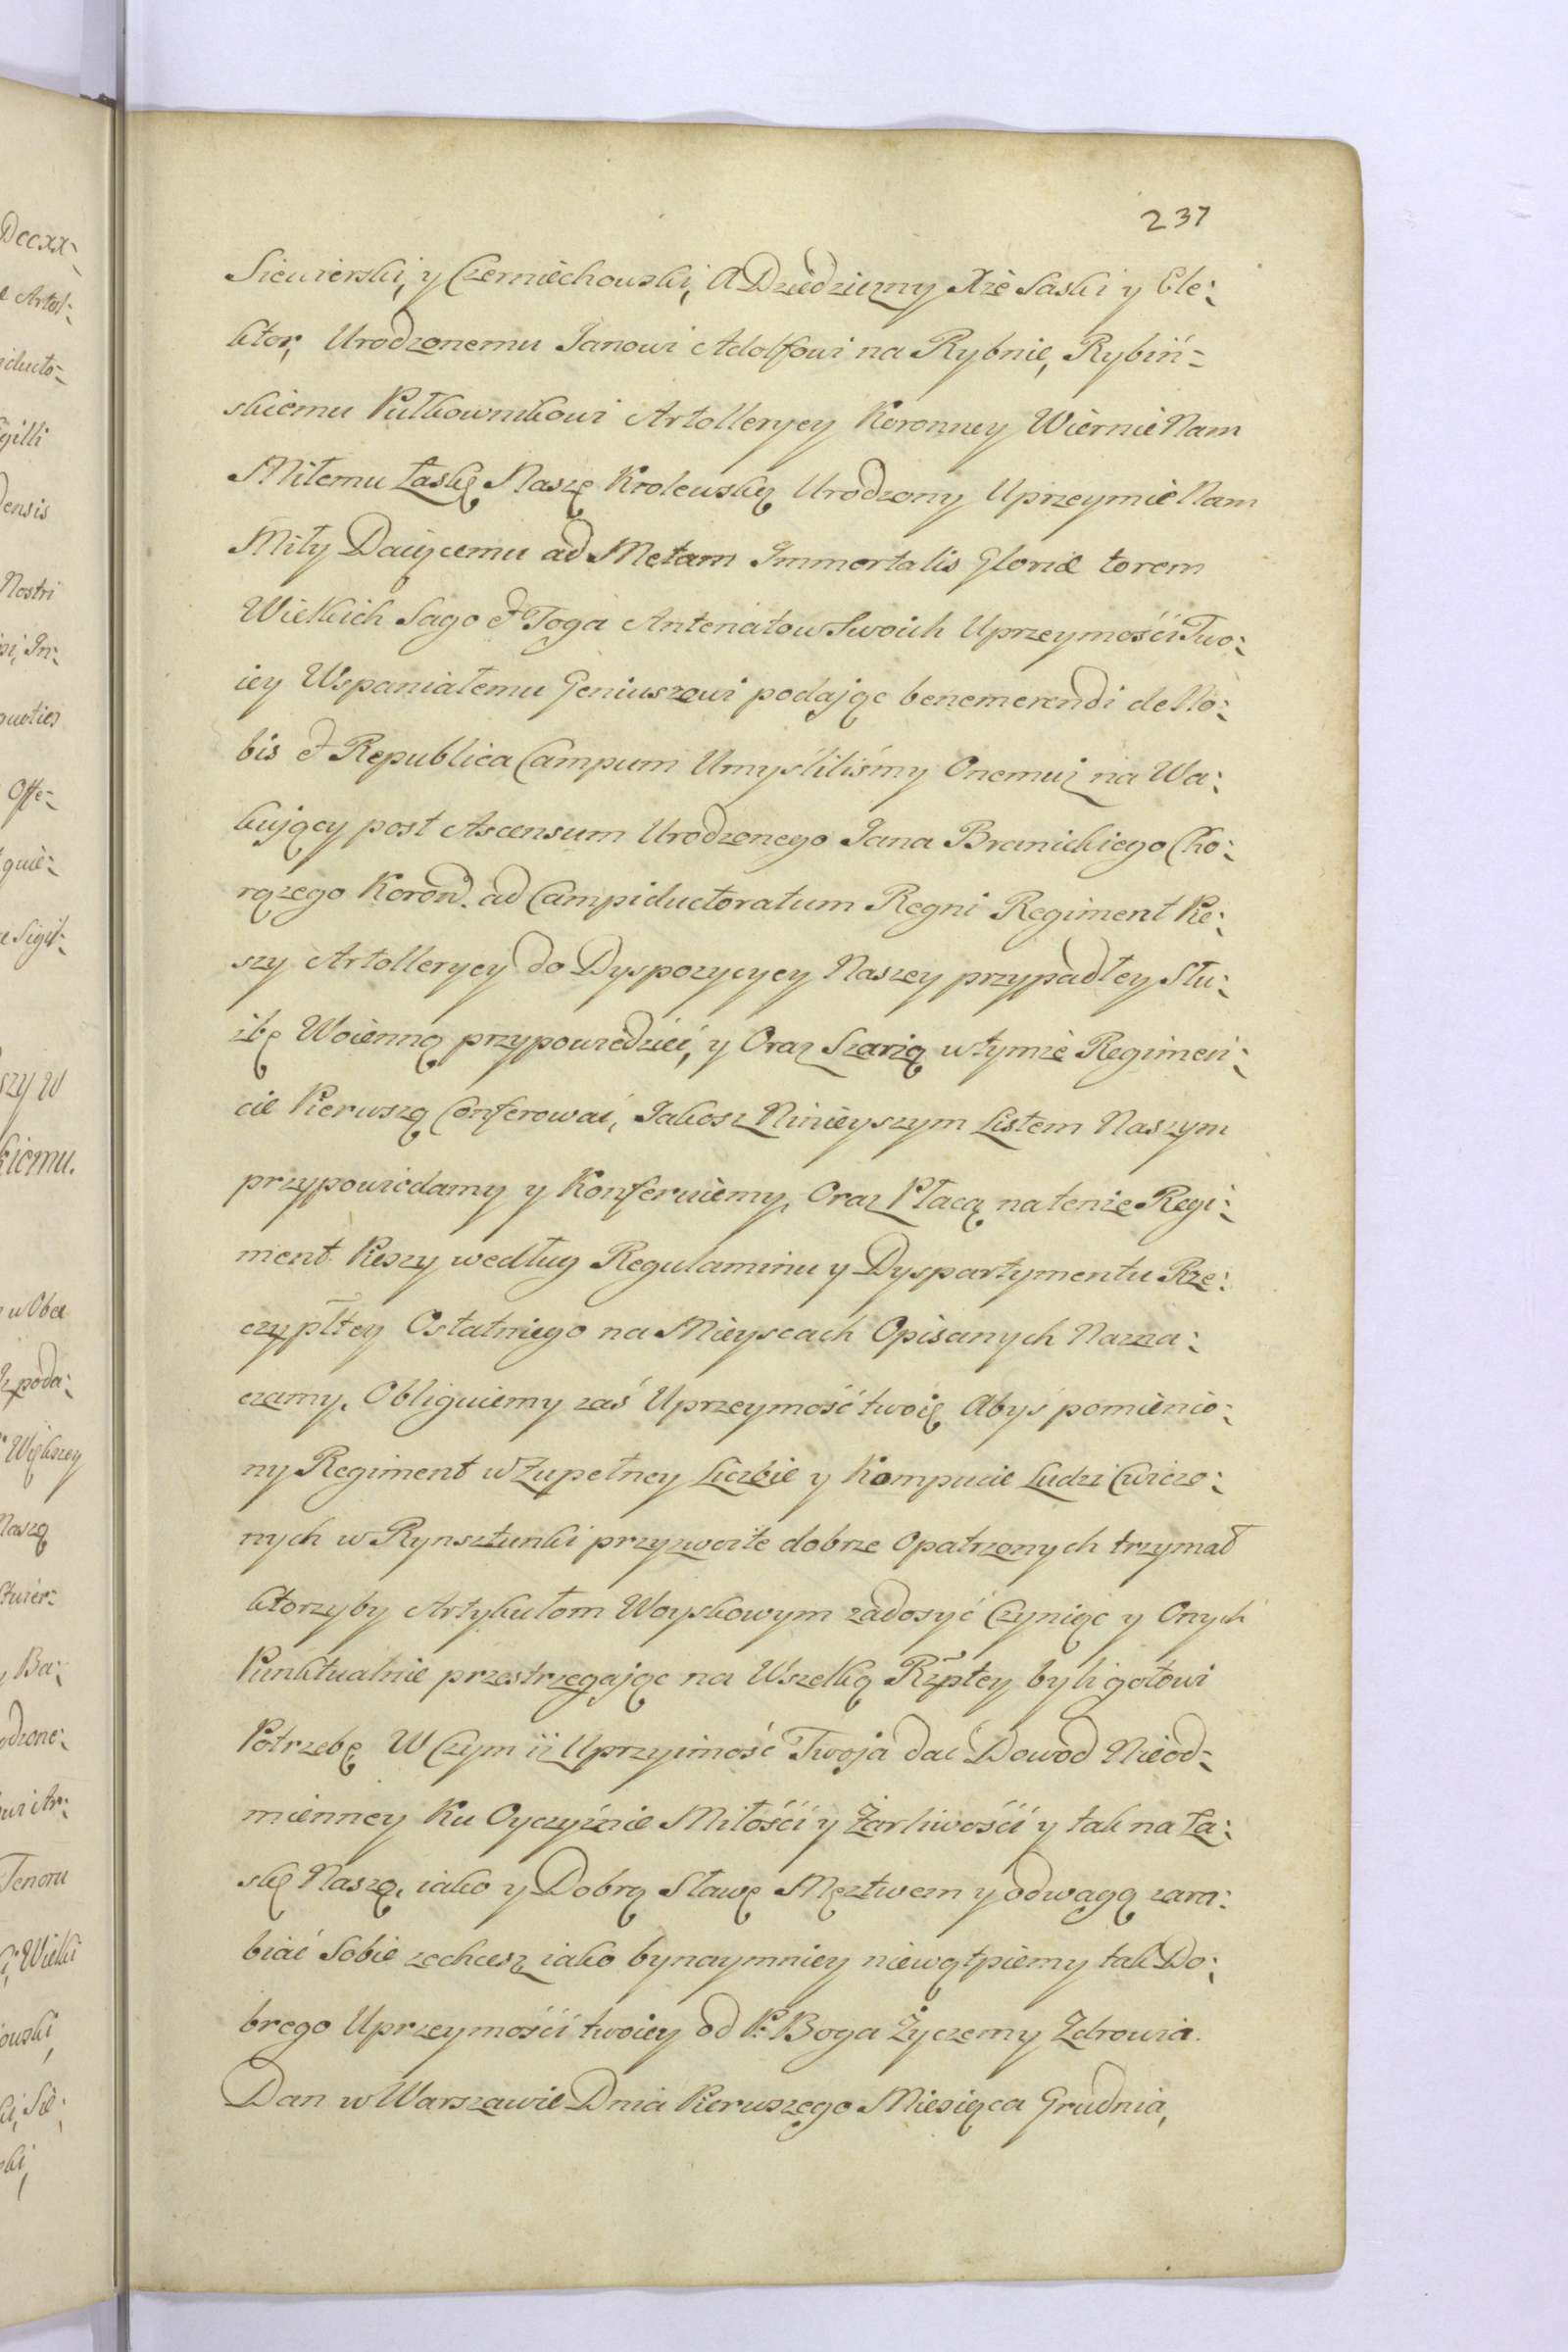 237
Siewierski, y Czerniechowski, A Dziedziczny Xże Saski y Ele:
ktor, Urodzonemu Janowi Adolfowi na Rybnie, Rybiń=
skiemu Pułkownikowi Artolleryey Koronney Wiernie Nam
Miłemu Łaskę Naszę Krolewską Urodzony Uprzeymie Nam
Miły Daiącemu ad Metam Immortalis Gloriæ torem
Wielkich Sago et Toga Antenatow Swoich Uprzeymości Two:
iey Wspaniałemu Geniuszowi podając benemerendi de No:
bis et Republica Campum Umyśliliśmy Onemuż na Wa:
kujący post Ascensum Urodzonego Jana Branickiego Cho:
rążego Koron. ad Campiductoratum Regni Regiment Pie:
szy Artolleryey do Dyspozycyey Naszey przypadłey Słu:
żbę Woienną przypowiedzieć, y Oraz Szarżą w tymże Regimen:
cie Pierwszą Conferować, Jakosz Ninieyszym Listem Naszym
przypowiedamy y Konferuiemy, Oraz Płacą na tenże Regi:
ment Pieszy według Regulaminu y Dyspartymentu Rze:
czypłtey Ostatniego na Mieyscach Opisanych Nazna:
czamy. Obliguiemy zaś Uprzeymość twoię Abyś pomienio:
ny Regiment w Zupełney Liczbie y Kompucie Ludzi Cwiczo:
nych w Rynsztunki przyzwoite dobrze Opatrzonych trzymał
ktorzyby Artykułom Woyskowym zadosyć Czyniąc y Onych
Punktualnie przestrzegając na Wszelką Rzpłtey byli gotowi
Potrzebę W Czym iż Uprzyimość Twoja dać Dowod Nieod=
mienney Ku Oyczyźnie Miłości y Żarliwości y tak na Ła:
skę Naszą, iako y Dobrą Sławę Męztwem y odwagą zara:
biać Sobie zechcesz iako bynaymniey niewątpiemy tak Do:
brego Uprzeymości twoiey od P: Boga Życzemy Zdrowia.
Dan w Warszawie Dnia Pierwszego Miesiąca Grudnia,